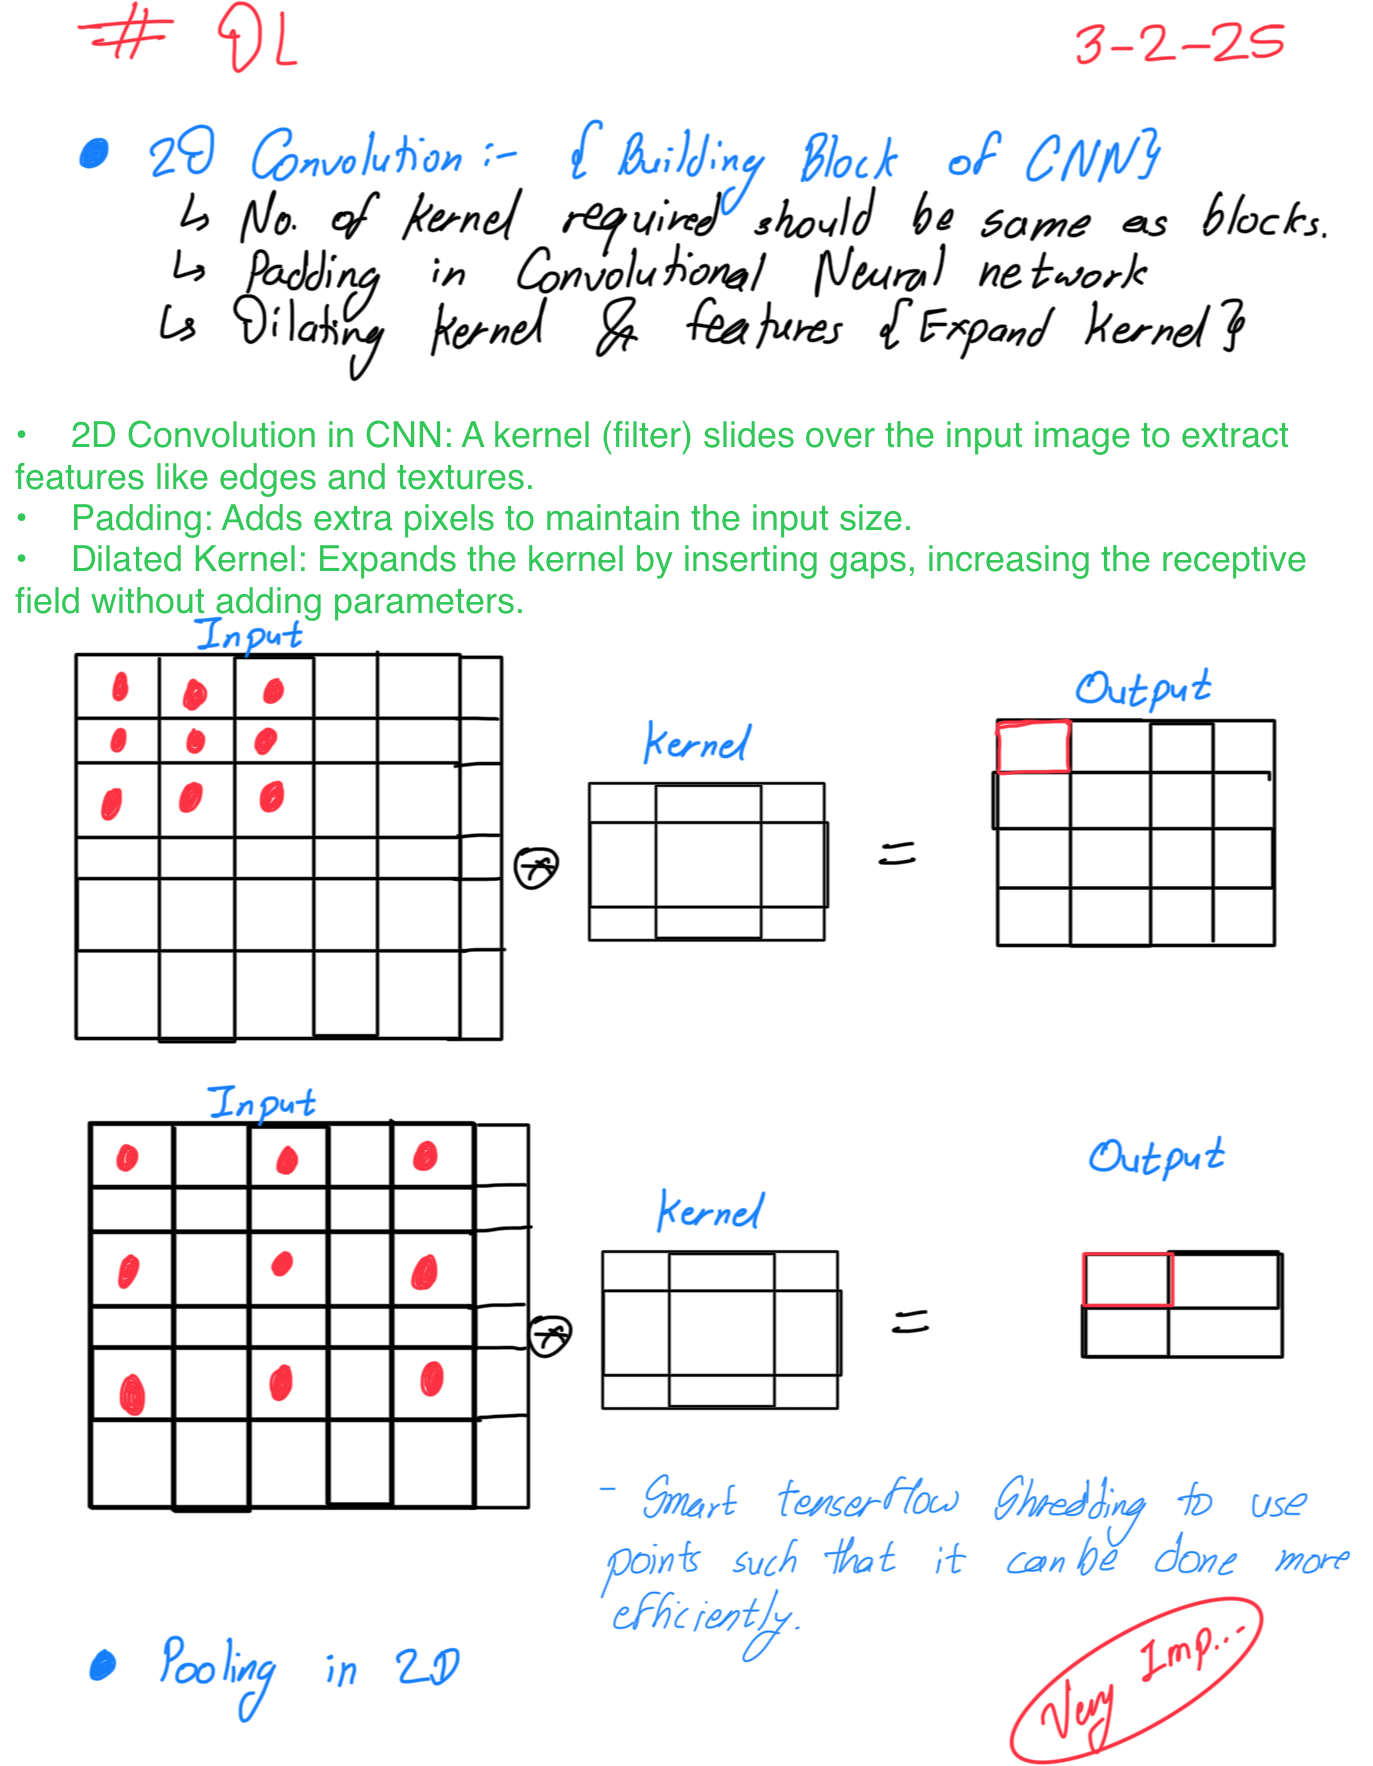 # DL
3-2-25
• 2D Convolution :- { Building Block of CNN}
↳ No. of Kernel required should be same as blocks.
↳ Padding in Convolutional Neural network
↳ Dilating Kernel & features {Expand Kernel}
• 2D Convolution in CNN: A kernel (filter) slides over the input image to extract
features like edges and textures.
• Padding: Adds extra pixels to maintain the input size.
• Dilated Kernel: Expands the kernel by inserting gaps, increasing the receptive
field without adding parameters.
Input
Kernel
Output
=
Input
Kernel
Output
=
- Smart tenserflow Shredding to use
points such that it can be done more
efficiently.
• Pooling in 2D
Very Imp...